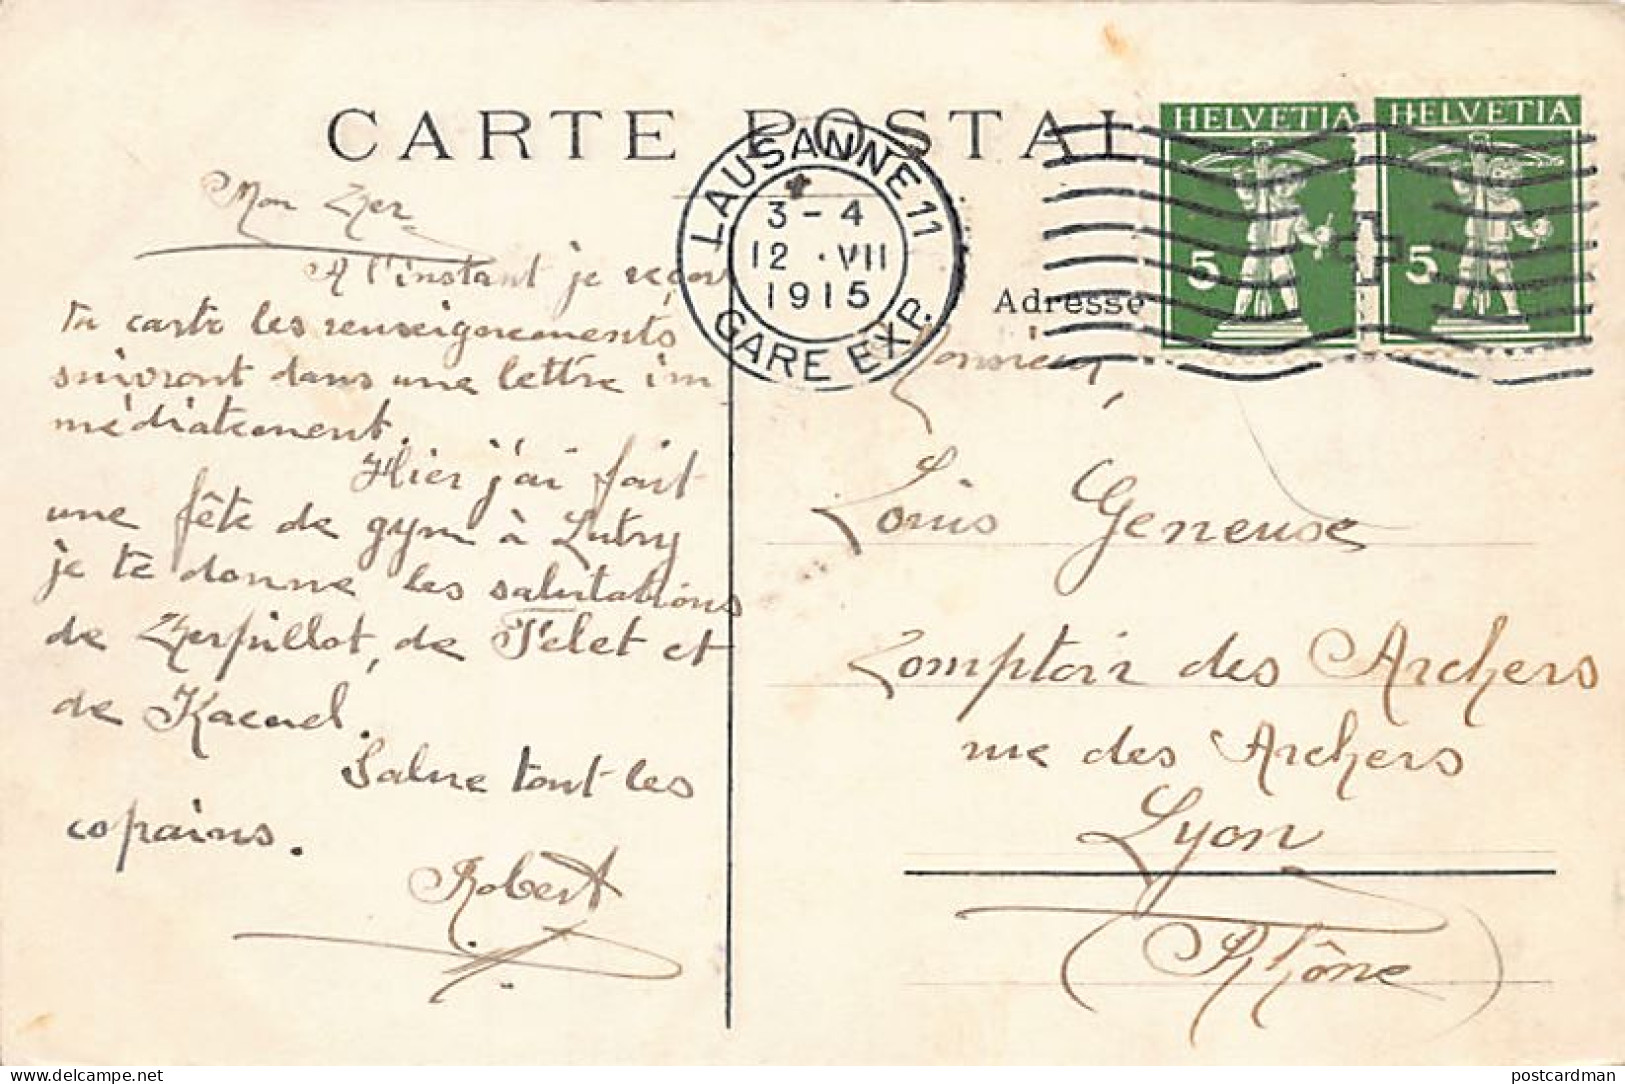 CARTE POSTALE
HELVETIA
HELVETIA
5
5
LAUSANNE 11
3-4
12 · VII
1915
GARE EXP.
Mon
A l'instant je reçois
ta carte les renseignements
suivront dans une lettre im
médiatement.
Hier j'ai fait
une fête de gym à Lutry
je te donne les salutations
de Zerpillot, de Felet et
de
Salue tout les
copains.
Robert
Adresse
Monsieur,
Louis Geneuse
Comptoir des Archers
rue des Archers
Lyon
(Rhône)
postcardman